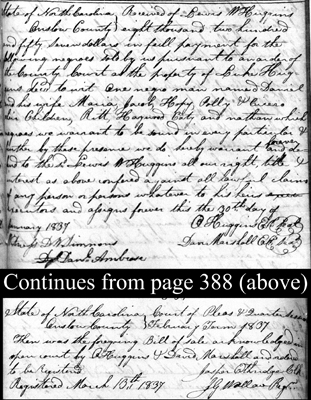 State of North Carolina Received of Lewis W Huggins
Onslow County eight thousand two hundred
and fifty seven dollars in full payment for the
following negroes sold by us pursuant to an order of
the County Court as the property of Luke Hug
gins decd to wit One negro man named Daniel
and his wife Maria Jacob, Hope, Polly &
her Children, and nathan which
negroes we warrant to be sound in every particular &
further by these presents we do hereby warrant and forever
to the sd Lewis W Huggins all our right title &
interest as above conferred against all laws & claims
of any person or persons whatever to his heirs
executors and assigns forever this the 30th day
January 1837
B Huggins
Witness D W Simmons
Danl Marshall
Danl Ambrose
Continues from page 388 (above)
State of North Carolina Court of Pleas & Quarter Sessions
Onslow County February Term 1837
Then was the foregoing Bill of sale acknowledged in
open court by B Huggins & David Marshall and ordered
to be registered
Jasper Etheridge Clk
Registered March 13th 1837